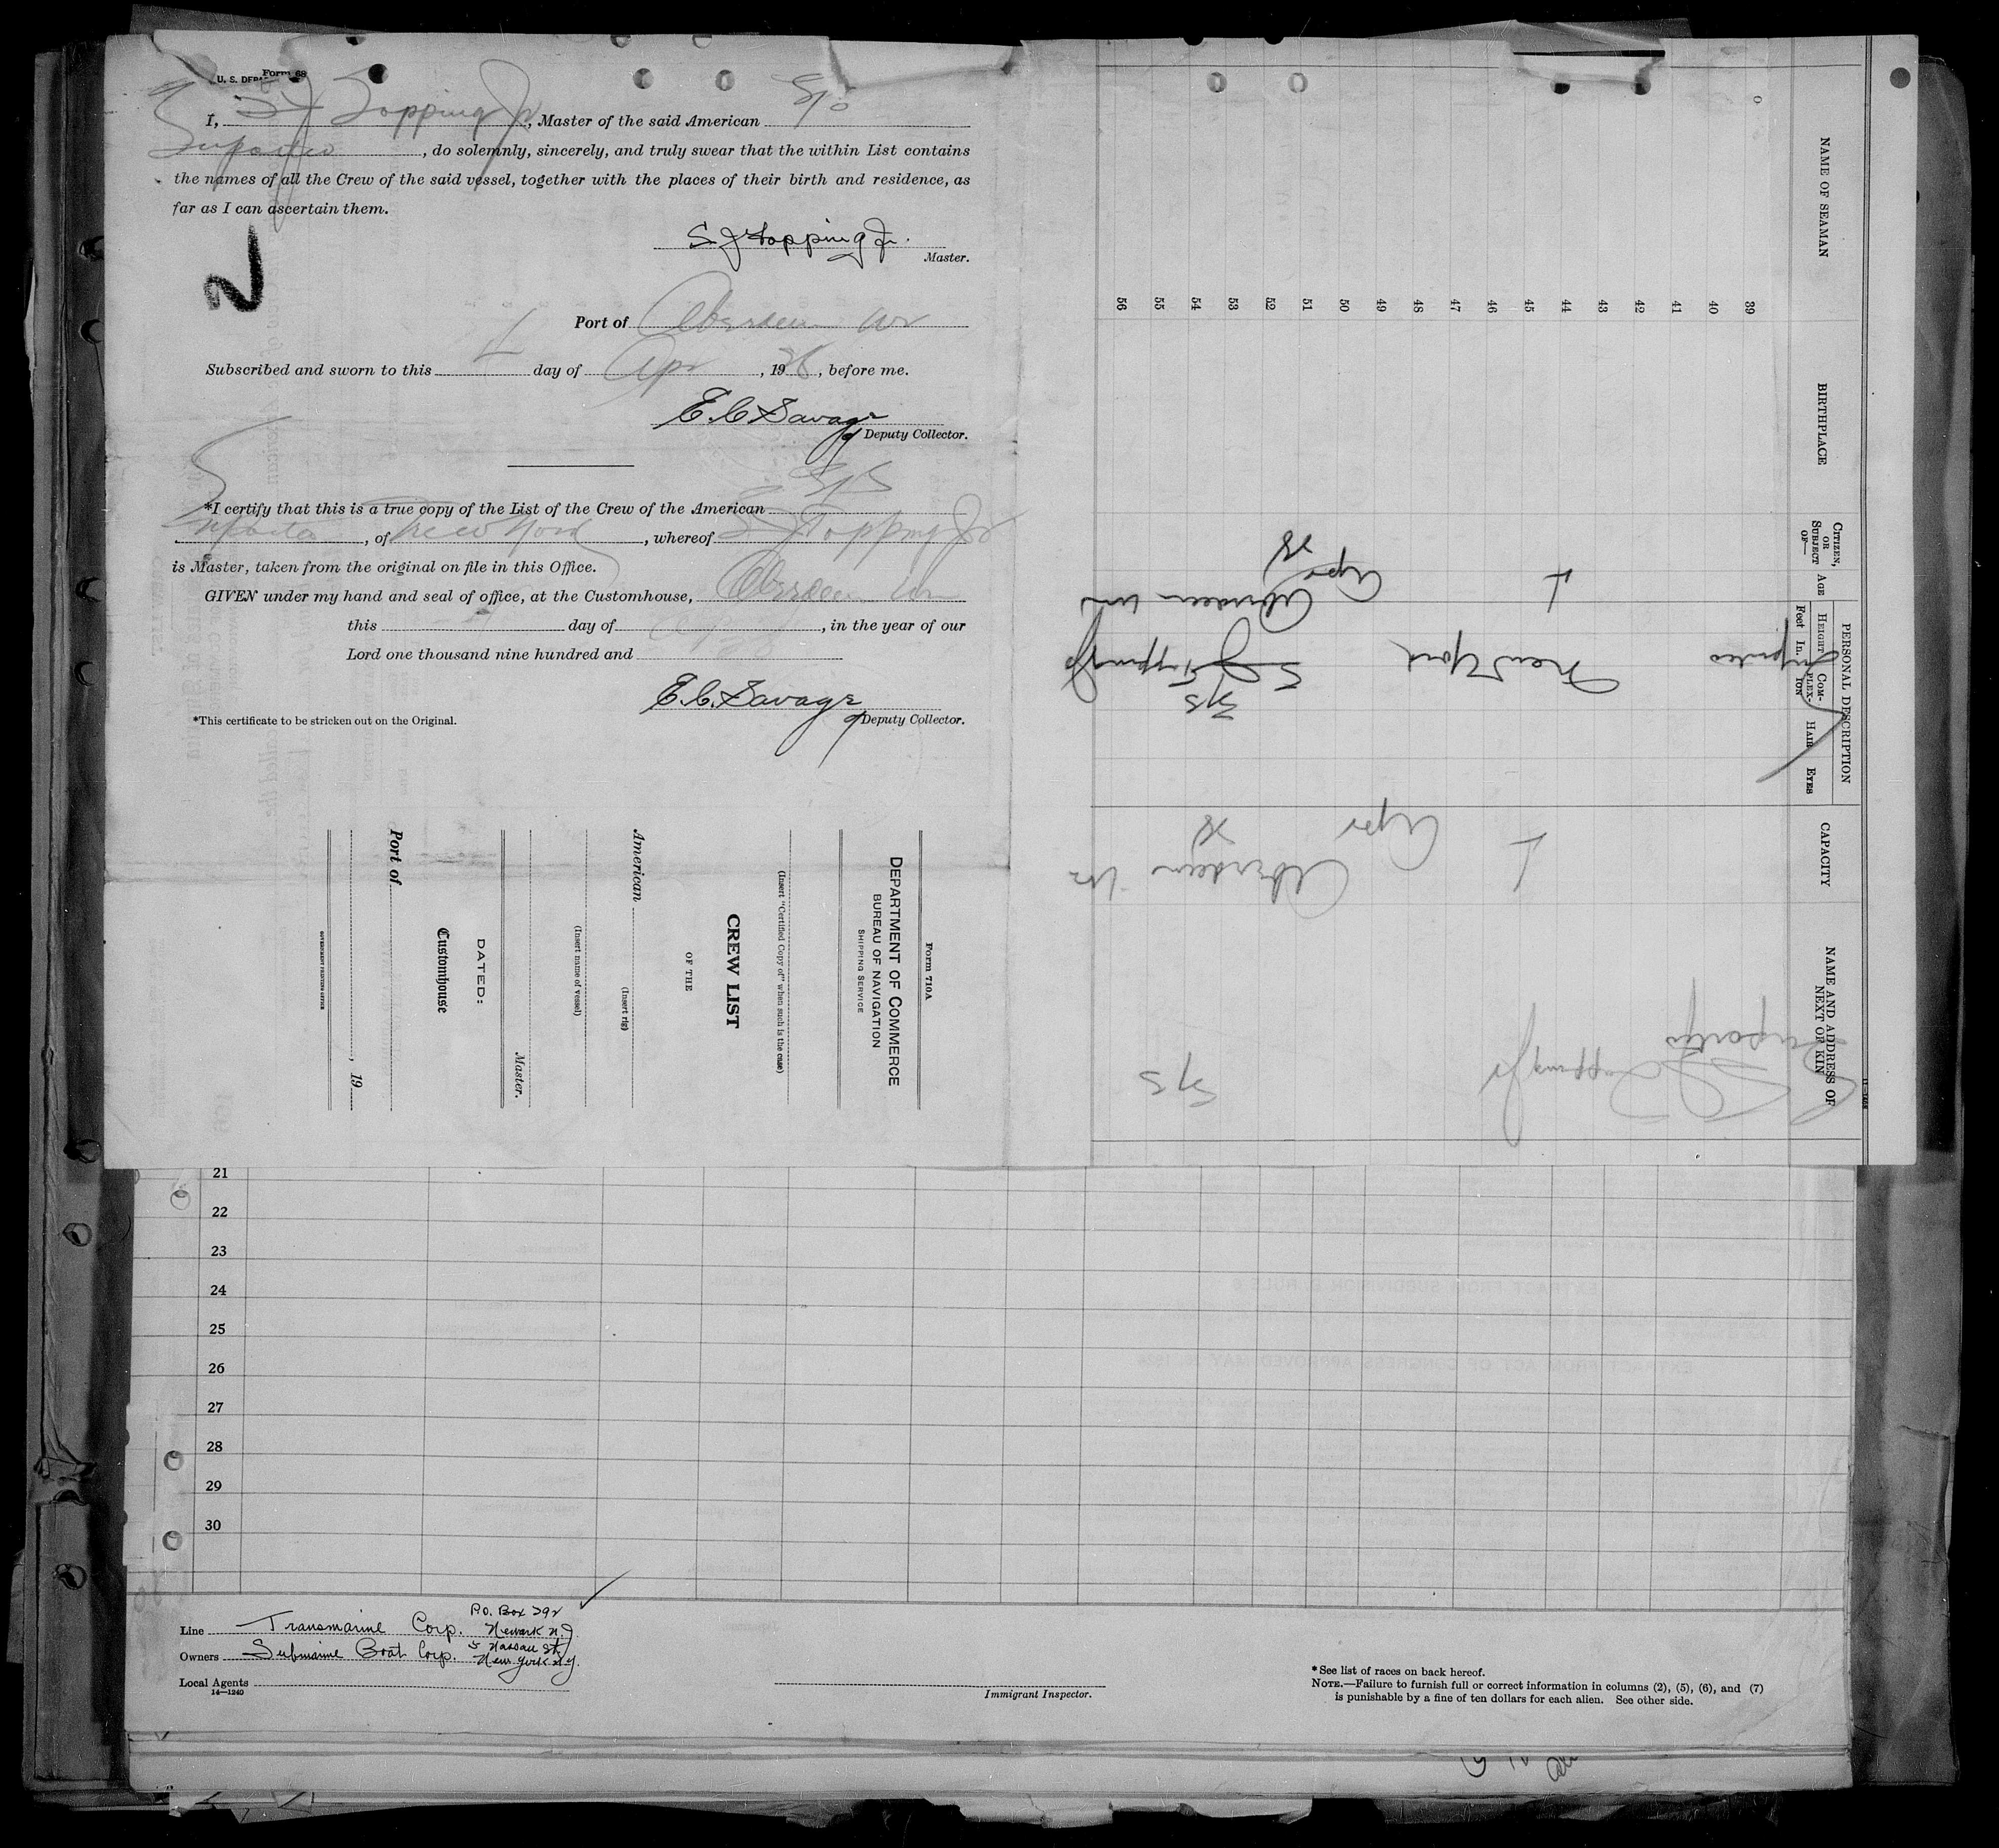 Form 68
U. S. DEPA
I, S J Topping Jr, Master of the said American S/S
Suportco, do solemnly, sincerely, and truly swear that the within List contains
the names of all the Crew of the said vessel, together with the places of their birth and residence, as
far as I can ascertain them.
S J Topping Jr.
Master.
Port of Aberdeen Wn
Subscribed and sworn to this day of Apr, 19 , before me.
E. C. Savage
Deputy Collector.
*I certify that this is a true copy of the List of the Crew of the American S/S
, of New York, whereof S J Topping Jr
is Master, taken from the original on file in this Office.
GIVEN under my hand and seal of office, at the Customhouse, Aberdeen Wn
this day of Apr, in the year of our
Lord one thousand nine hundred and
E. C. Savage
*This certificate to be stricken out on the Original.
Deputy Collector.
Form 710A
DEPARTMENT OF COMMERCE
BUREAU OF NAVIGATION
SHIPPING SERVICE
(Insert "Certified Copy of" when such is the case)
CREW LIST
OF THE
American
(Insert rig)
(Insert name of vessel)
Master.
DATED:
Customhouse
Port of
, 19
GOVERNMENT PRINTING OFFICE
NAME OF SEAMAN
BIRTHPLACE
CITIZEN, OR SUBJECT OF—
AGE
PERSONAL DESCRIPTION
HEIGHT
Feet In.
COMPLEXION
HAIR
EYES
CAPACITY
NAME AND ADDRESS OF NEXT OF KIN
39
40
41
42
43
44
45
46
47
48
49
50
51
52
53
54
55
56
New York
S J Topping Jr
S/S
Aberdeen Wn
Apr
Apr
Aberdeen Wn
S J Topping Jr
S/S
21
22
23
24
25
26
27
28
29
30
Line Transmarine Corp. P.O. Box 792 Newark N.J.
Owners Submarine Boat Corp. 5 Nassau St, New York N.Y.
Local Agents
14—1240
Immigrant Inspector.
*See list of races on back hereof.
NOTE.—Failure to furnish full or correct information in columns (2), (5), (6), and (7)
is punishable by a fine of ten dollars for each alien. See other side.